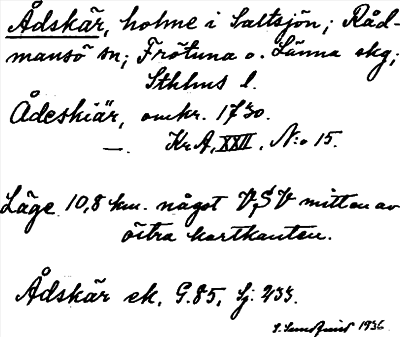 Ådskär, holme i Saltsjön; Råd-
mansö sn; Frötuna o. Länna skg;
Sthlms l.
Ådeskiär, omkr. 1730.
—. Kr.A, XXII, N:o 15.
Läge 10,8 km. något V,SV mitten av
östra kartkanten.
Ådskär ek. G.85, bj: 233.
1936